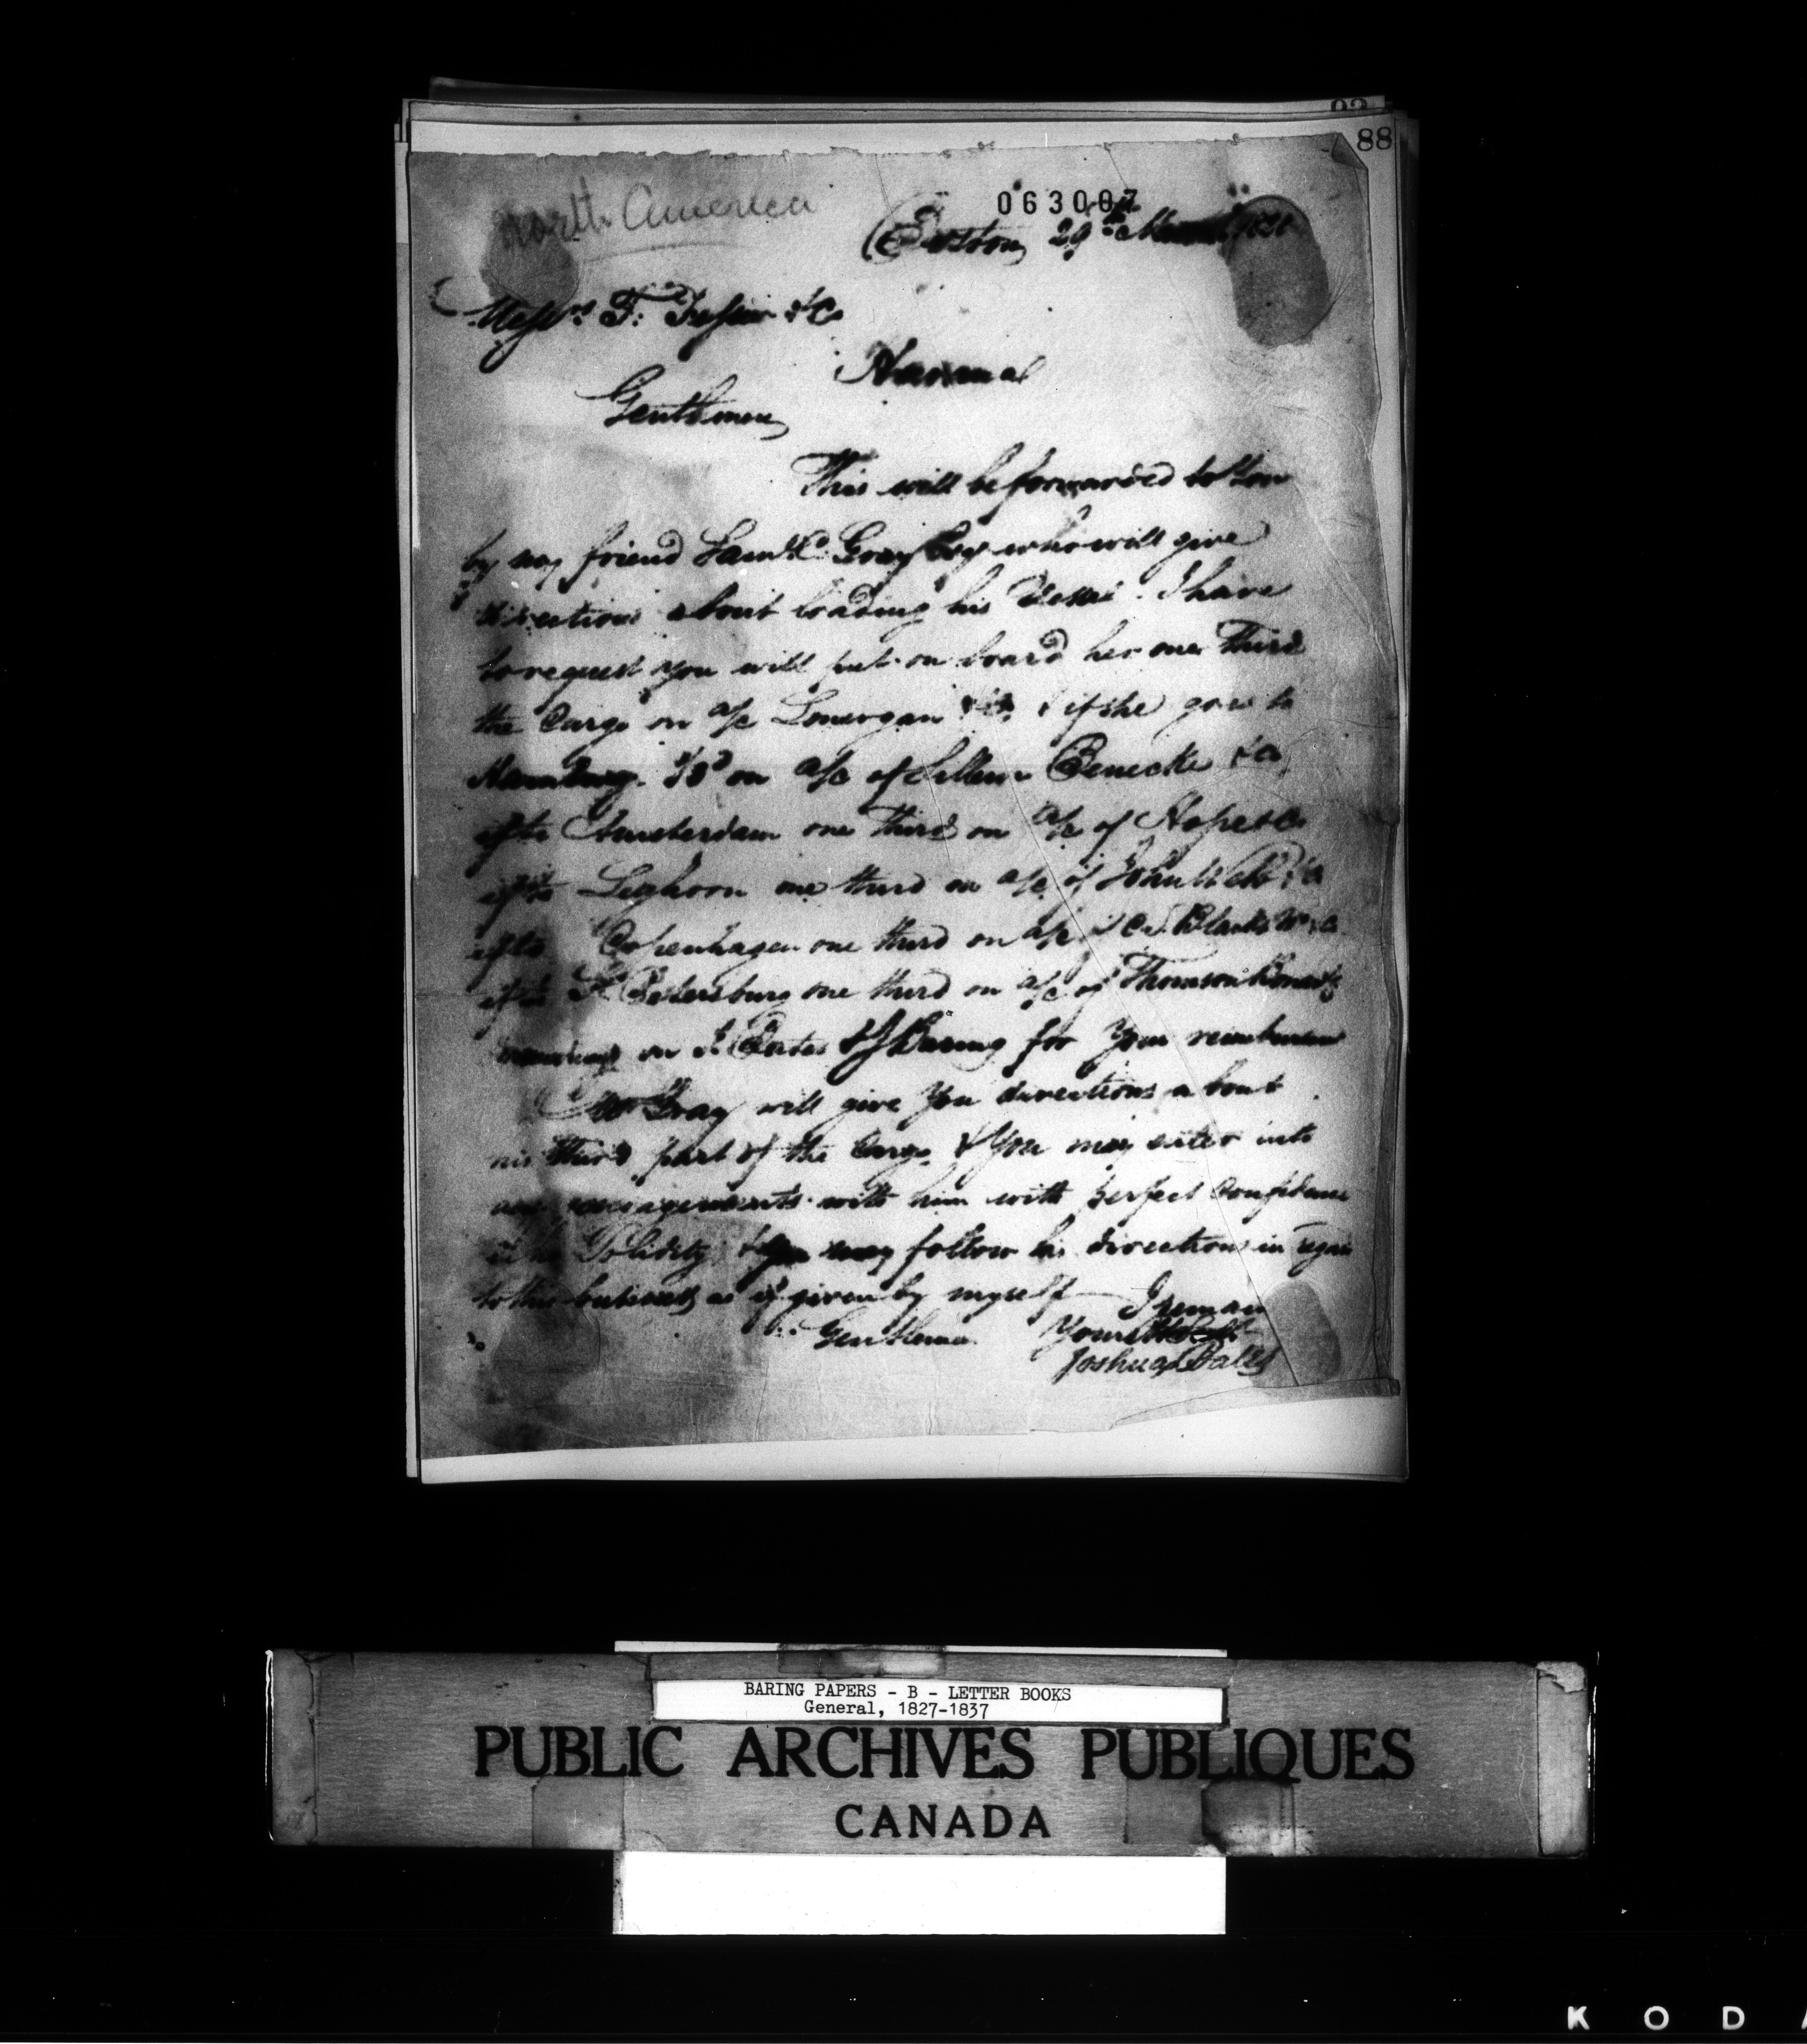 92
88
North America
063007
Boston 29th March
Messrs. F. Tessier & Co
Havana
Gentlemen
This will be forwarded to You
by my friend Saml. C. Gray Esqr who will give
directions about loading his Vessel. I have
to request you will put on board her one Third
the Cargo on a/c Lonergan & Co. & if she goes to
Hamburg. 1/3d on a/c of Sillem Benecke & Co,
if to Amsterdam one third on a/c of Hope & Co
if to Leghorn one third on a/c of John Webb & Co
if to Copenhagen one third on a/c
if to St Petersburg one third on a/c of Thomson Bonar & Co
on J. Bates & J Baring for Your reimbursem
Mr Gray will give You directions about
his third part of the Cargo & You may enter into
any engagements with him with perfect Confidence
Solidity & you may follow his directions in regard
to this business as if given by myself I remain
Gentlemen Your
Joshua Bates
BARING PAPERS - B - LETTER BOOKS
General, 1827-1837
PUBLIC ARCHIVES PUBLIQUES
CANADA
K O D A